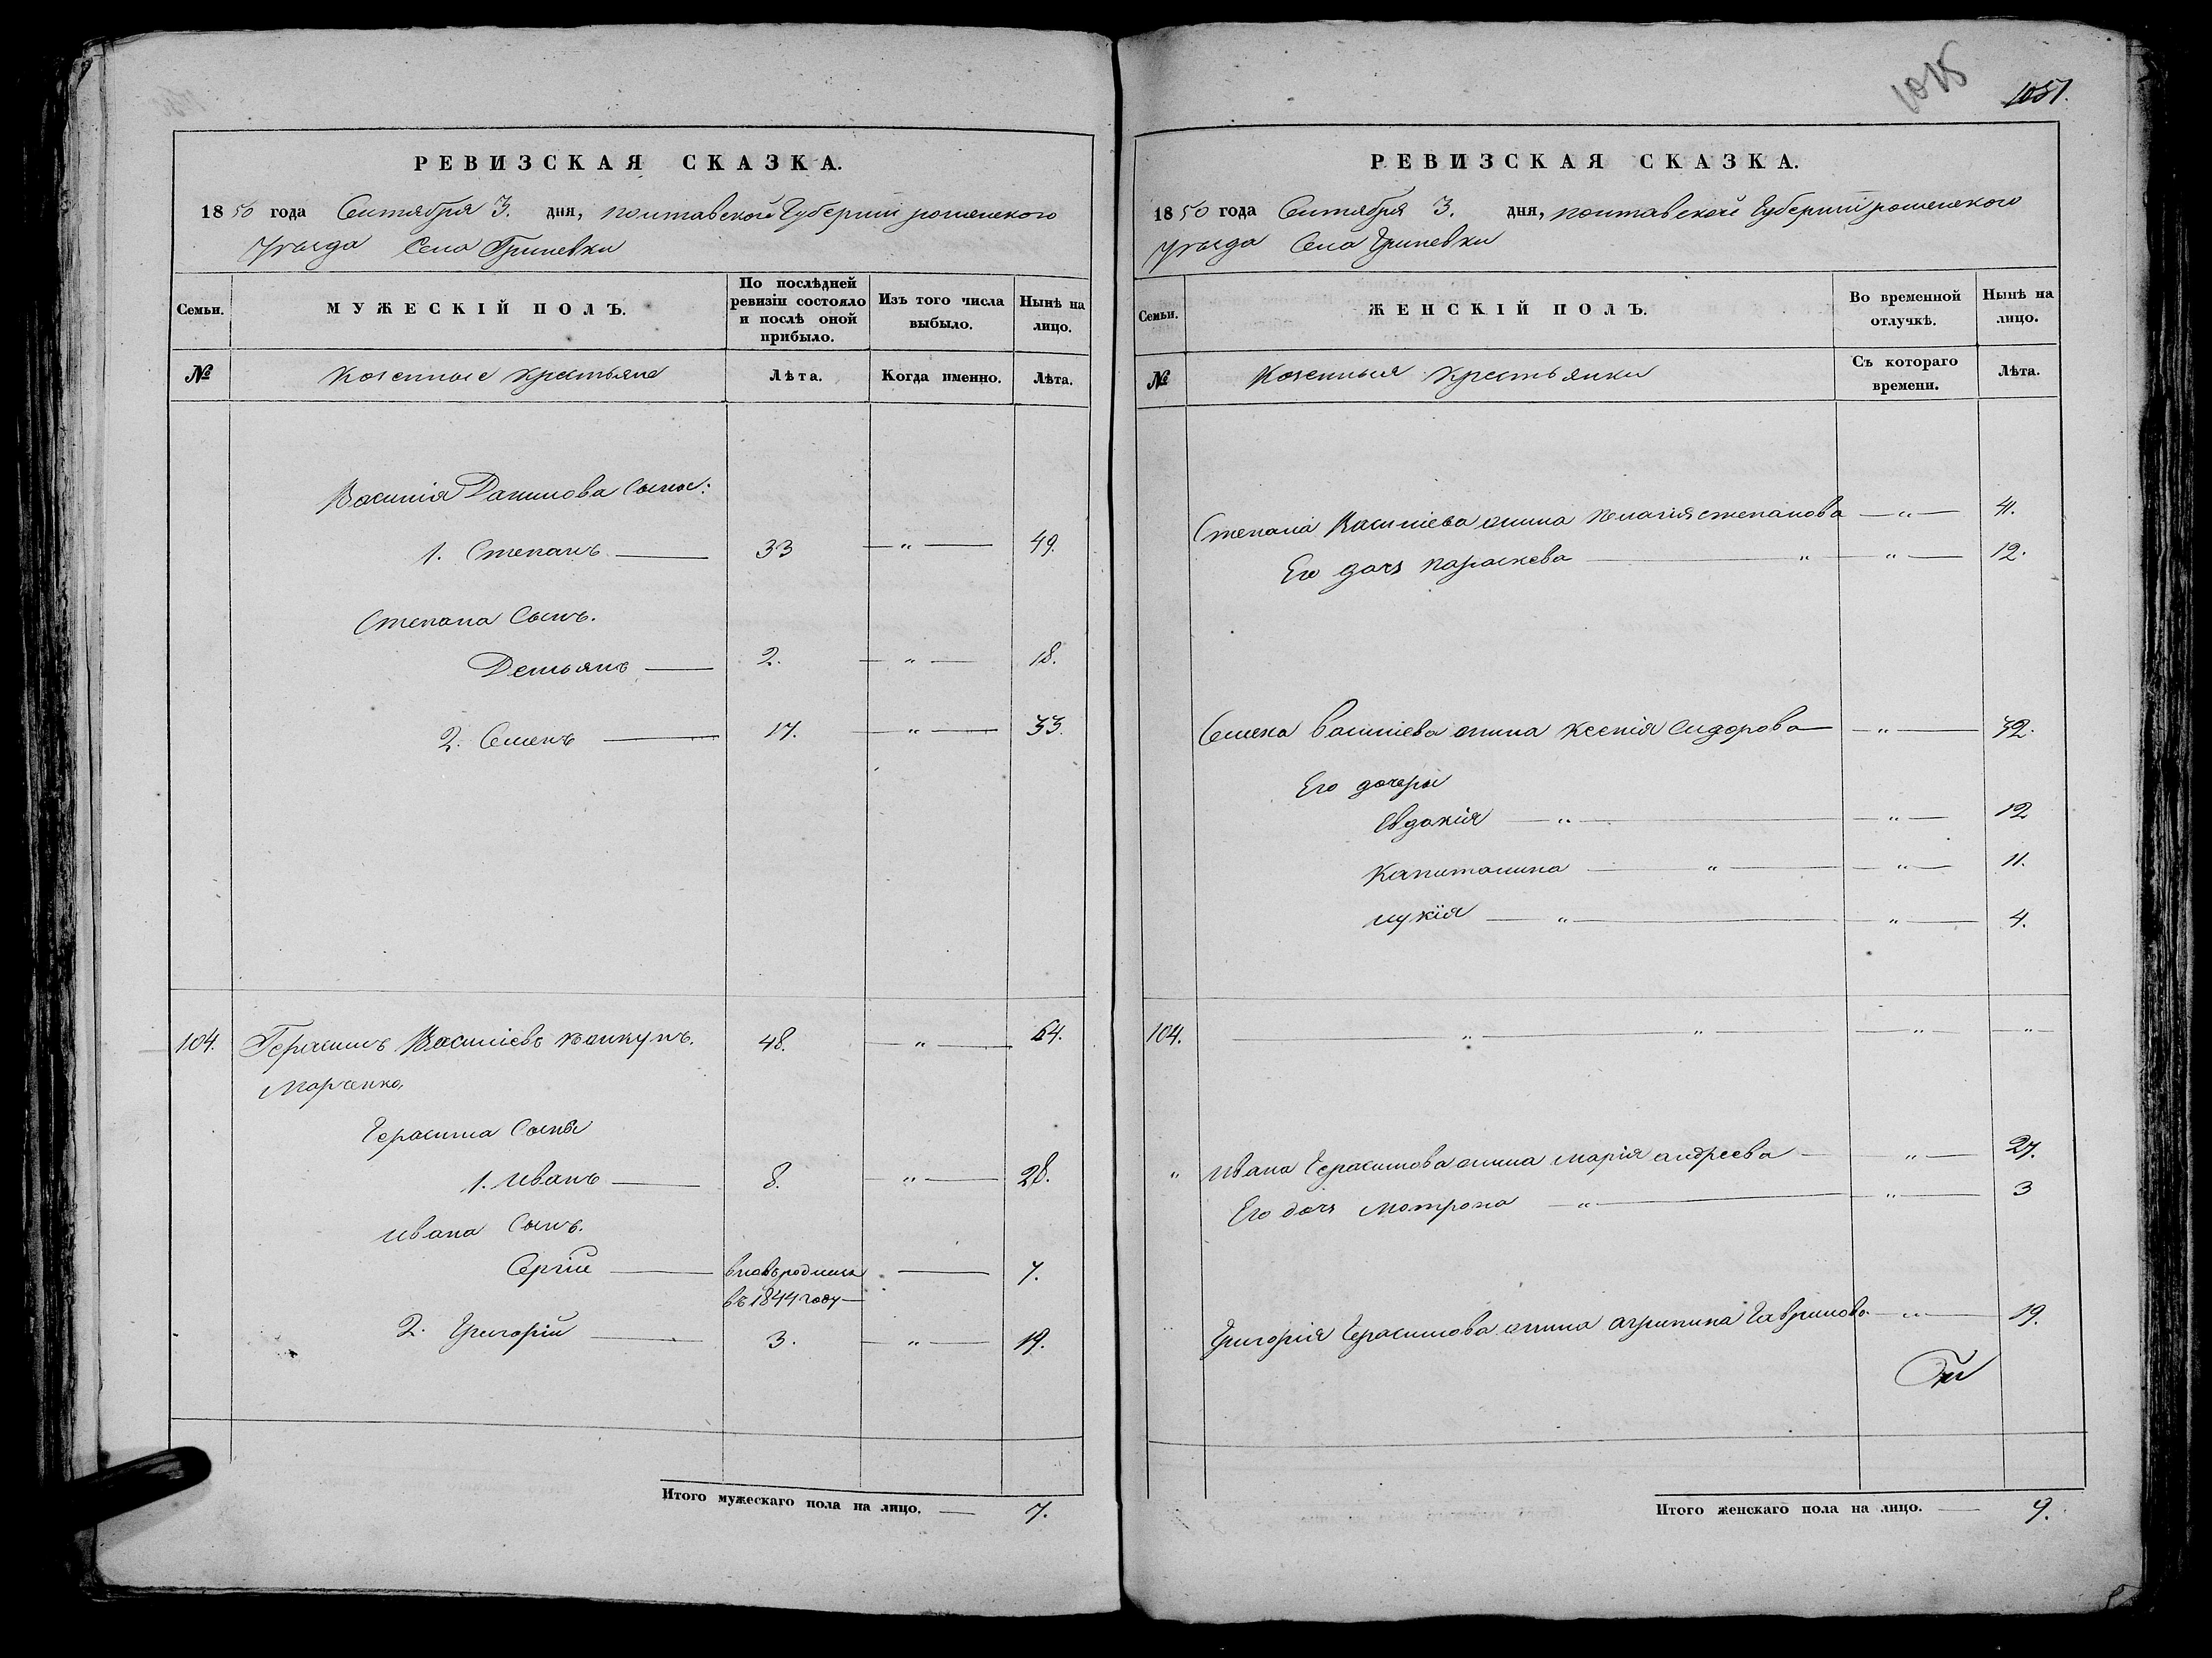 РЕВИЗСКАЯ СКАЗКА.
1850 года Сентября 3. дня, полтавской Губерніи роменского
Уѣзда Села Гриневки
Семьи.
МУЖЕСКІЙ ПОЛЪ.
По послѣдней ревизіи состояло и послѣ оной прибыло.
Изъ того числа выбыло.
Нынѣ на лицо.
№ Козенные крестьяне Лѣта. Когда именно. Лѣта.
Василія Данилова Сыны:
1. Степанъ — 33 — „ — 49.
Степана Сынъ.
Демьянъ — 2. — „ — 18.
2. Семенъ — 17. — „ — 33.
104. Герасимъ Василіевъ 48. — „ — 64.
Марченко,
Герасима Сыны
1. Иванъ — 8. — „ — 28.
Ивана Сынъ.
Сергій — вновьродился — 7.
въ 1844 году —
2. Григорій — 3. — „ — 19.
Итого мужескаго пола на лицо. — 7.
1015
1051.
РЕВИЗСКАЯ СКАЗКА.
1850 года Сентября 3. дня, полтавской Губерніи роменского
Уѣзда Села Гриневки
Семьи.
ЖЕНСКІЙ ПОЛЪ.
Во временной отлучкѣ.
Нынѣ на лицо.
№ Козенныя крестьянки Съ котораго времени. Лѣта.
Степана Василіева жина пелагія степанова — „ — 41.
Его дочь параскева — „ — „ — 12.
Семена Василіева жина ксенія Сидорова — „ — 32.
Его дочери
Евдокія — „ — „ — 12
Капитолина — „ — „ — 11.
лукія — „ — „ — 4.
104. — „ — „ — „ — „
„ Ивана Герасимова жина марія андреева — „ — 27.
Его дочь мотрона — „ — „ — 3
Григорія Герасимова жина агрипина Гаврилова — „ — 19.
Итого женскаго пола на лицо. — 9.